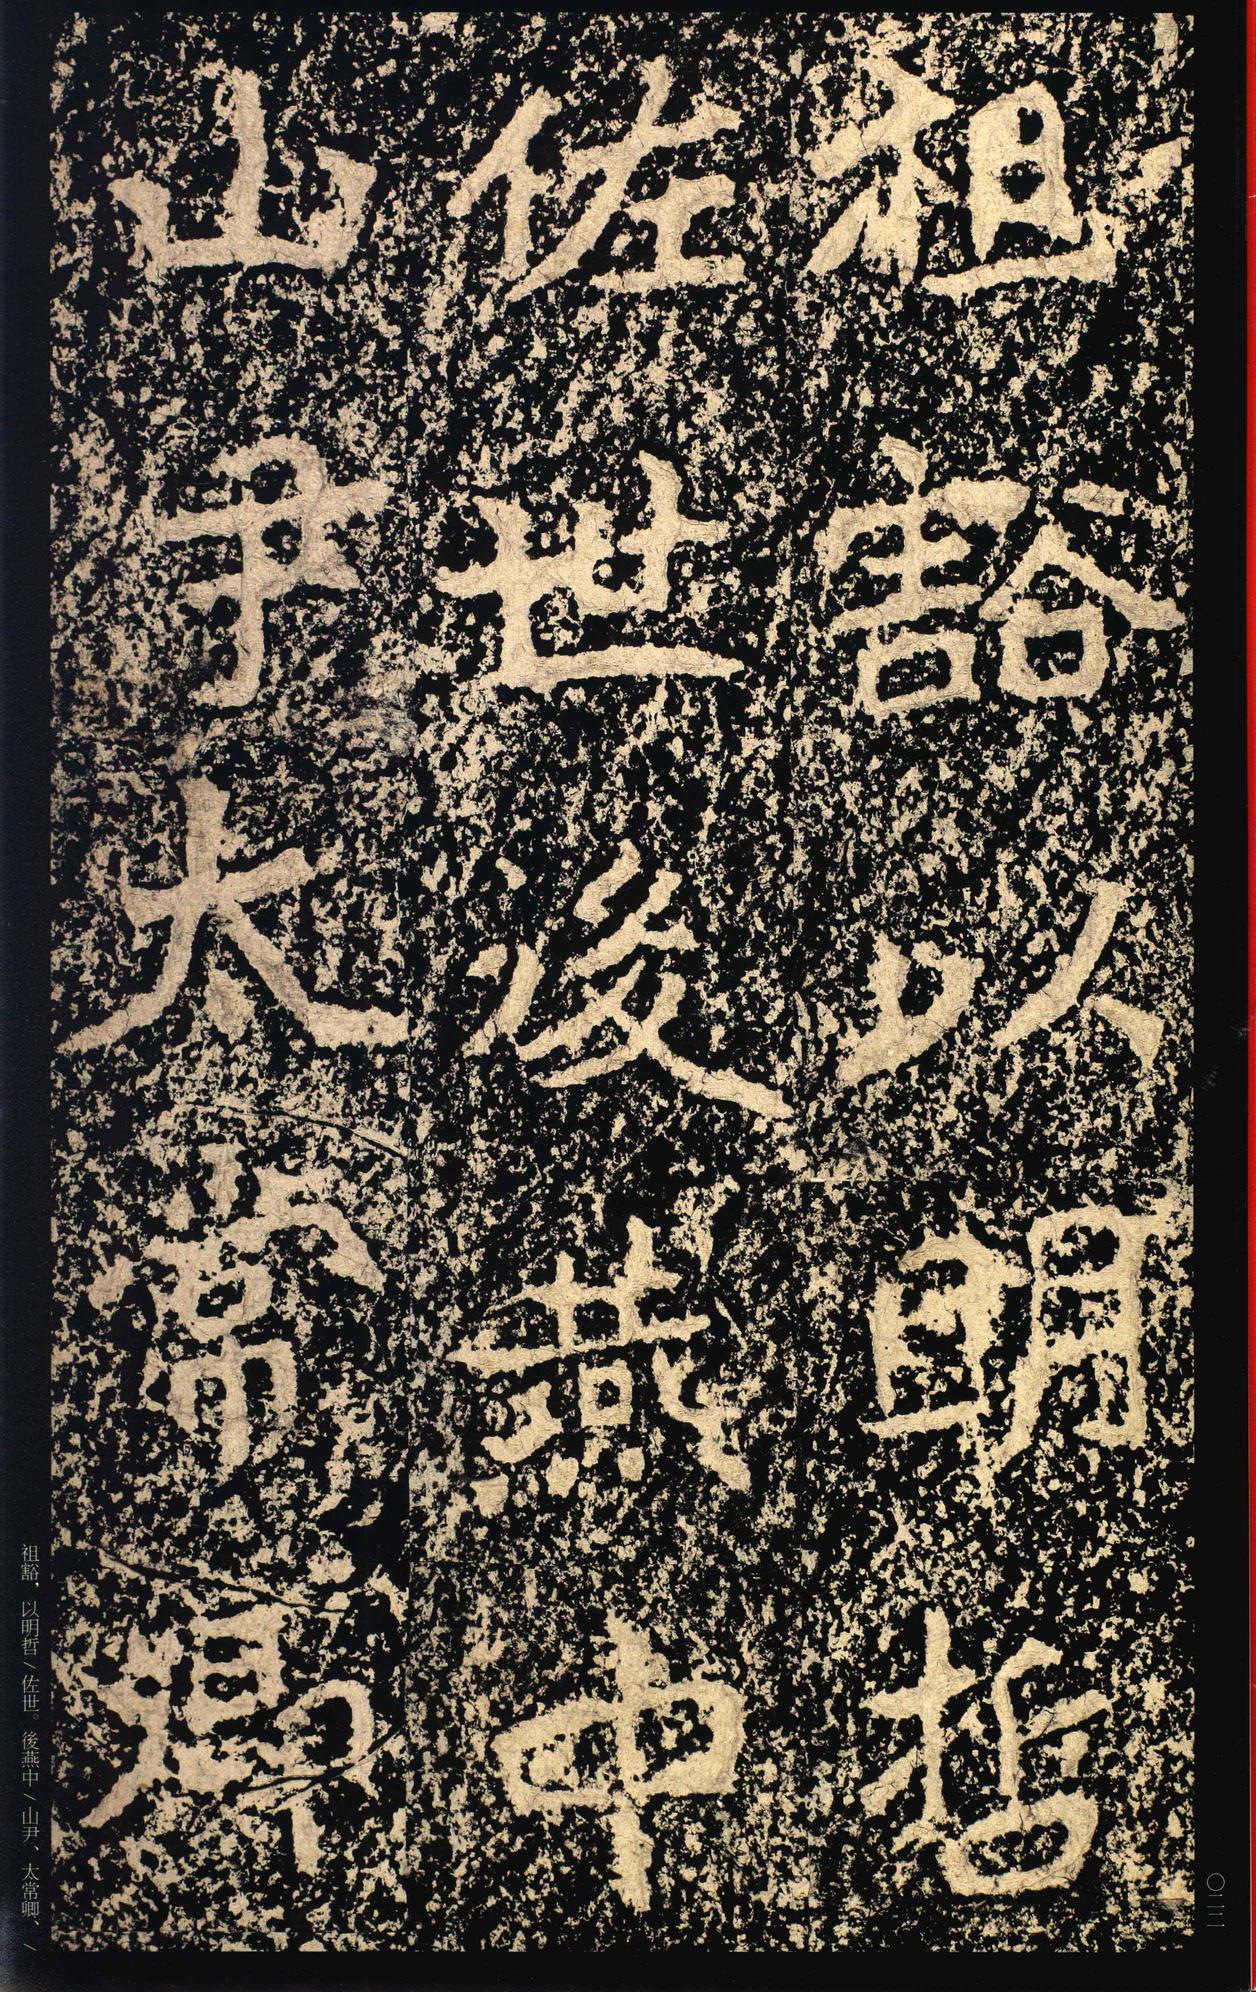 祖豁以明哲
佐世後燕中
山尹太常卿
祖豁，以明哲／佐世。後燕中／山尹、太常卿、／
〇二二